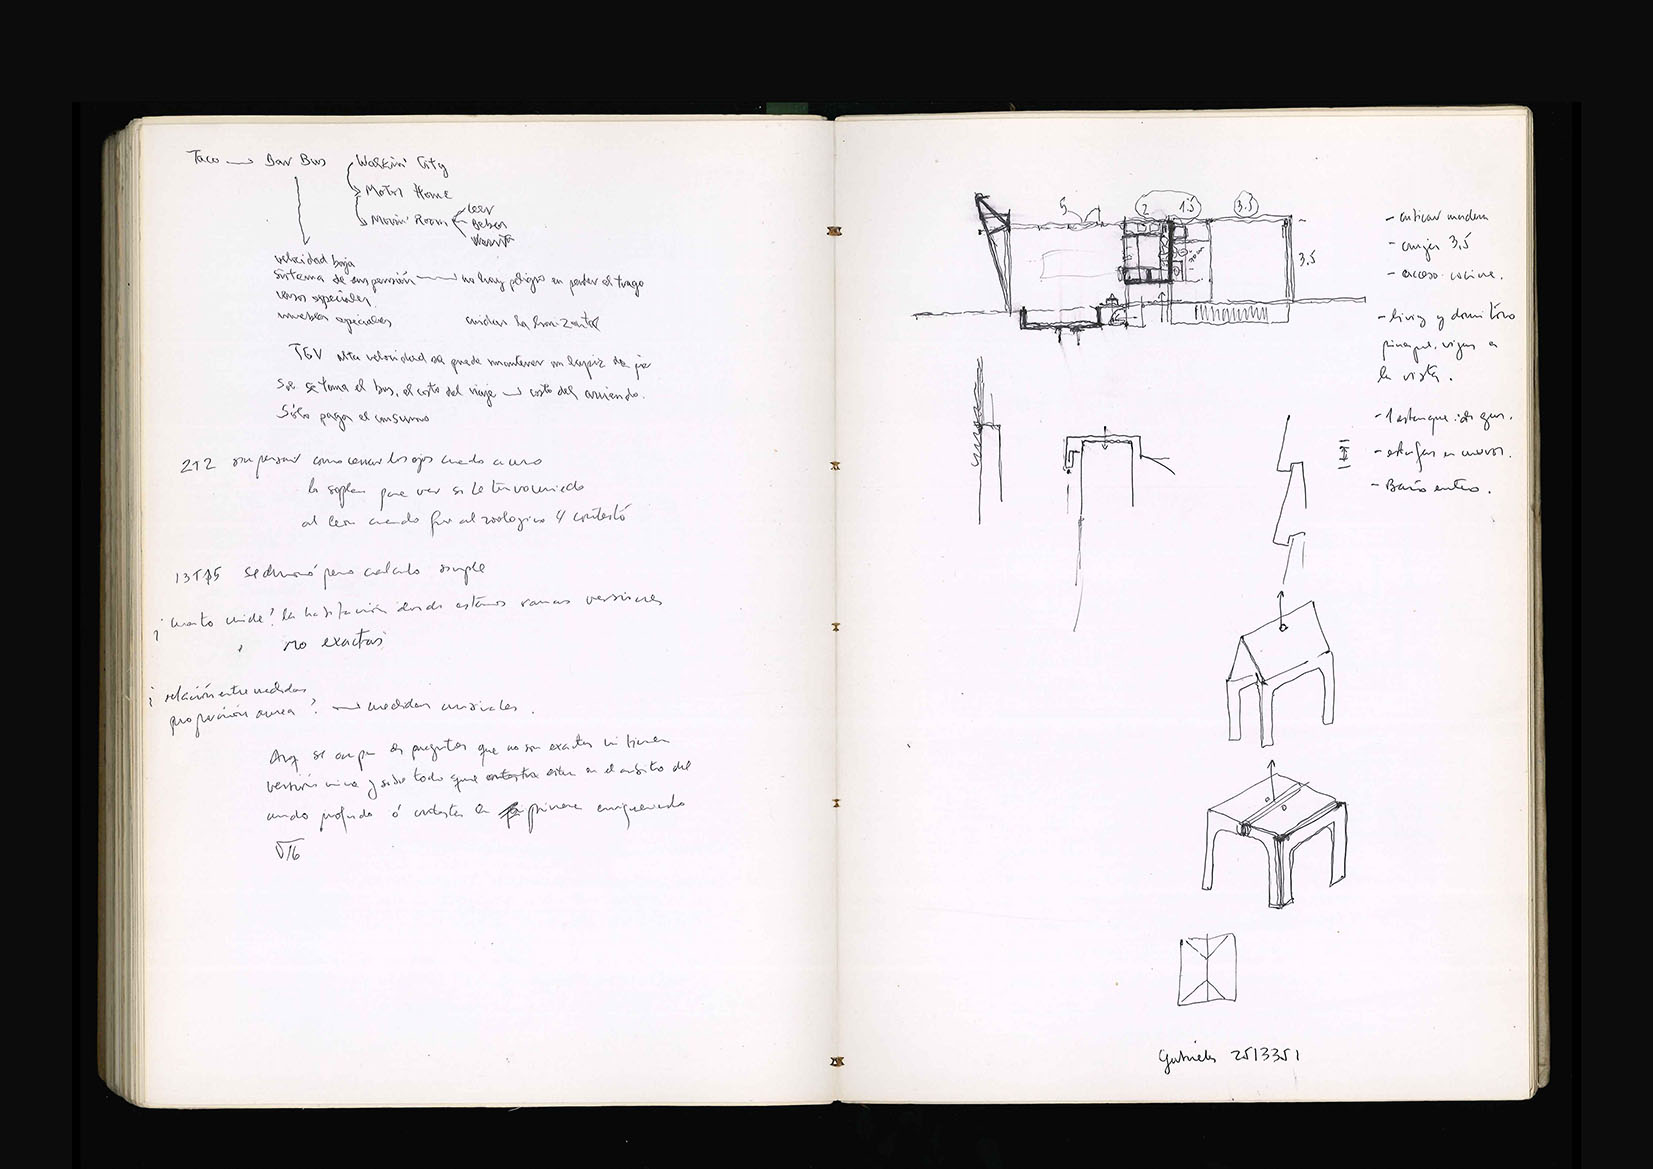 Taco → Bar Bus
Walkin' City
Motor Home
Movin' Room
leer
beber
velocidad baja
sistema de suspensión → no hay peligro en perder el trago
vasos especiales.
muebles especiales
cuidar la horizontal
TGV alta velocidad se puede mantener un lapiz de pie
se toma el bus, el costo del viaje → costo del arriendo.
Sólo pagar el consumo
2+2 sin pensar como cerrar los ojos cuando a uno
lo soplan para ver si le tuvo miedo
al leon cuando fue al zoologico 4 contestó
13+45 se demoró pero calculo simple
¿Cuanto mide? la habitación donde estamos varias versiones
no exactas
¿relación entre medidas
proporción aurea? → medidas musicales.
Arq se ocupa de preguntas que no son exactas ni tienen
versión unica y sobre todo que estan en el ambito del
√16
5
2
1.5
3.5
3.5
- mujer 3,5
- acceso cocina.
- living y dormitorio
principal, vigas a
la vista.
- 1 estanque de gas.
- estufas en muros.
- Baño entero.
Gabriela 2513351